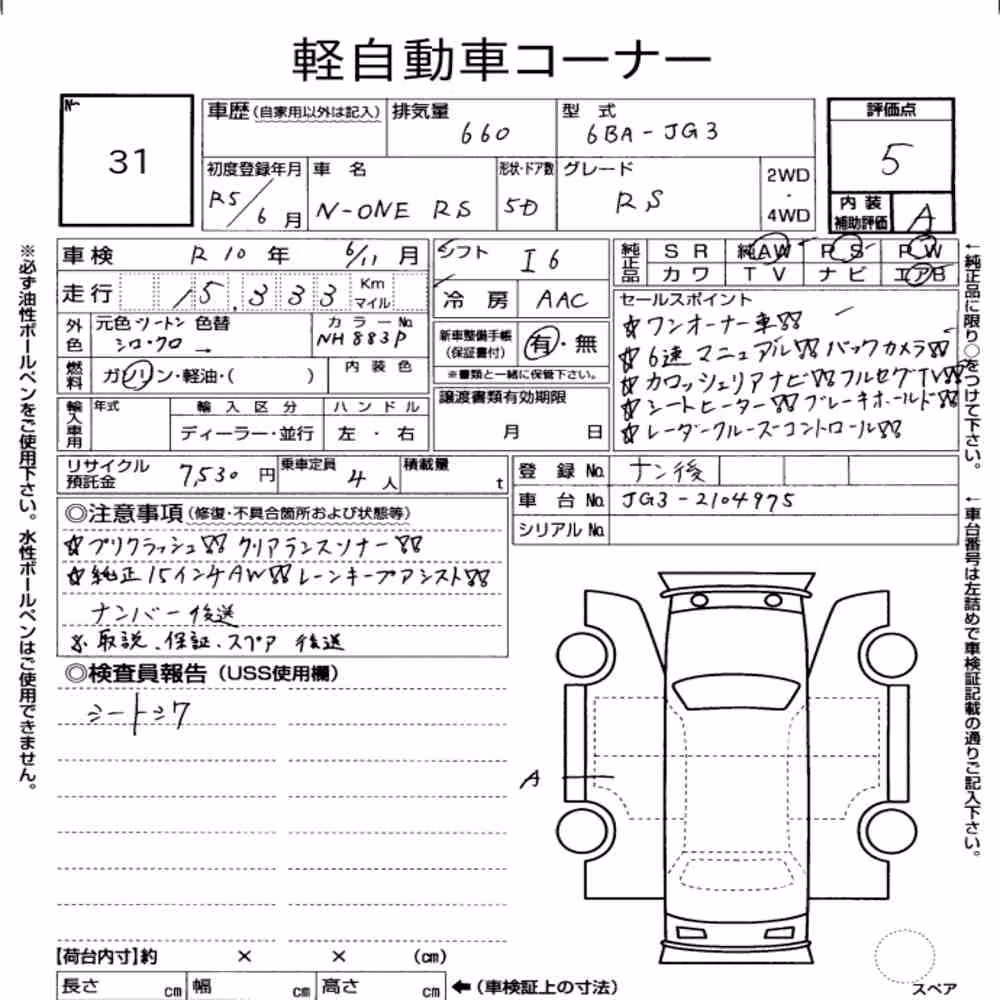 軽自動車コーナー
No. 31
車歴(自家用以外は記入) 排気量 660 型式 6BA-JG3 評価点 5
初度登録年月 R5/6月 車名 N-ONE RS 形状・ドア数 5D グレード RS 2WD・4WD
内装補助評価 A
車検 R10年 6/11月 シフト I6 純正品 SR 純AW PS PW
カワ TV ナビ エアB
走行 15,333 Km マイル 冷房 AAC
セールスポイント
外色 元色 ツートン 色替 シロ・クロ カラーNo. NH883P
新車整備手帳(保証書付) 有・無
※書類と一緒に保管下さい。
☆ワンオーナー車!!
☆6速マニュアル!! バックカメラ!!
☆カロッシェリアナビ!! フルセグTV!!
☆シートヒーター!! ブレーキホールド!!
☆レーダークルーズコントロール!!
燃料 ガソリン・軽油・( ) 内装色
譲渡書類有効期限 月 日
輸入車用 年式 輸入区分 ハンドル
ディーラー・並行 左・右
リサイクル預託金 7,530円 乗車定員 4人 積載量 t
登録No. ナン後
車台No. JG3-2104975
シリアルNo.
◎注意事項(修復・不具合箇所および状態等)
☆プリクラッシュ!! クリアランスソナー!!
☆純正15インチAW!! レーンキープアシスト!!
ナンバー後送
※取説、保証、スペア 後送
◎検査員報告(USS使用欄)
シートシワ
A
【荷台内寸】約 × × (cm)
長さ cm 幅 cm 高さ cm ←(車検証上の寸法)
スペア
※必ず油性ボールペンをご使用下さい。水性ボールペンはご使用できません。
←純正品に限り○をつけて下さい。
←車台番号は左詰めで車検証記載の通りご記入下さい。